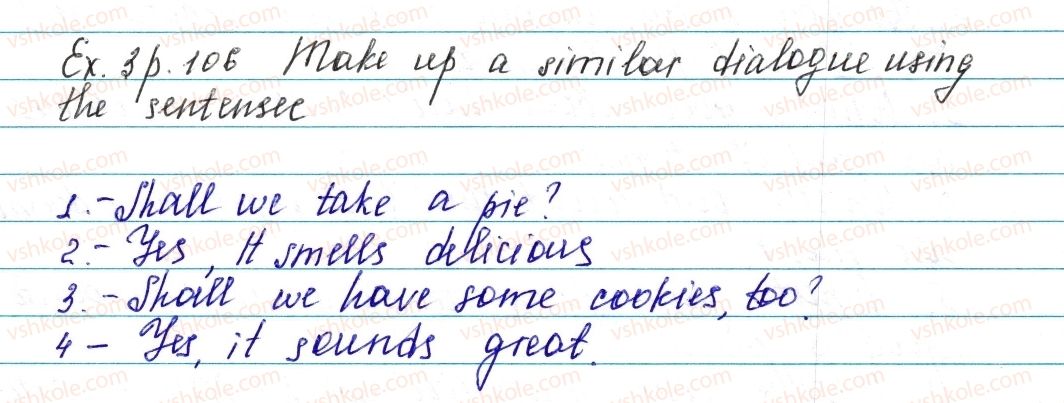 Ex. 3 p. 106 Make up a similar dialogue using
the sentensee
1. - Shall we take a pie?
2. - Yes, It smells delicious
3. - Shall we have some cookies, too?
4 - Yes, it sounds great.